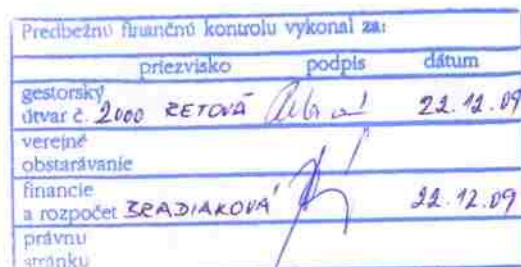 Predbežnú finančnú kontrolu vykonal za:
priezvisko podpis dátum
gestorský
útvar č. 2000 RETOVÁ 22.12.09
verejné
obstarávanie
financie
a rozpočet BRADIAKOVÁ 22.12.09
právnu
stránku